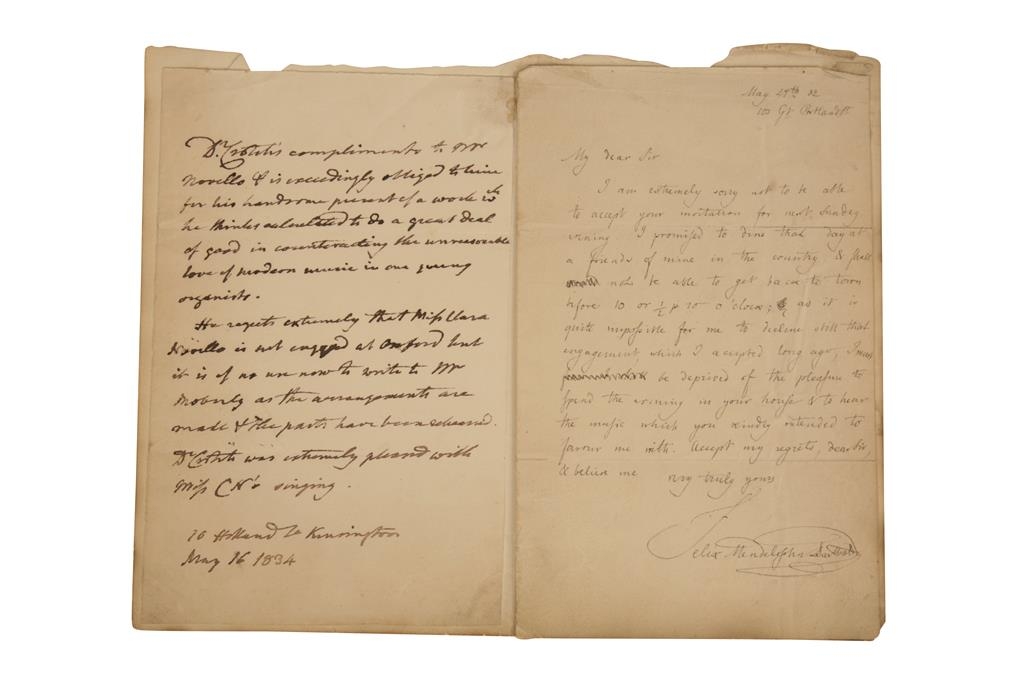 Dr. Crotch's compliments to Mr
Novello & is exceedingly obliged to him
for his handsome present of a work wch
he thinks calculated to do a great deal
of good in counteracting the unreasonable
love of modern music in our young
organists.
He regrets extremely that Miss Clara
Novello is not engaged at Oxford but
it is of no use now to write to Mr
Moberly as the arrangements are
made & the parts have been rehearsed.
Dr Crotch was extremely pleased with
Miss C N's singing.
Holland Kensington
May 16 1834
May 29th 32
103 Gt Portland St
My dear Sir
I am extremely sorry not to be able
to accept your invitation for next Sunday
evening. I promised to dine that day at
a friends of mine in the country & shall
not be able to get back to town
before 10 or ½ p 10 o'clock; as it is
quite impossible for me to decline still that
engagement, which I accepted long ago, I must
be deprived of the pleasure to
spend the evening in your house & to hear
the music which you kindly intended to
favour me with. Accept my regrets, dear Sir,
& believe me very truly yours
Felix Mendelssohn Bartholdy